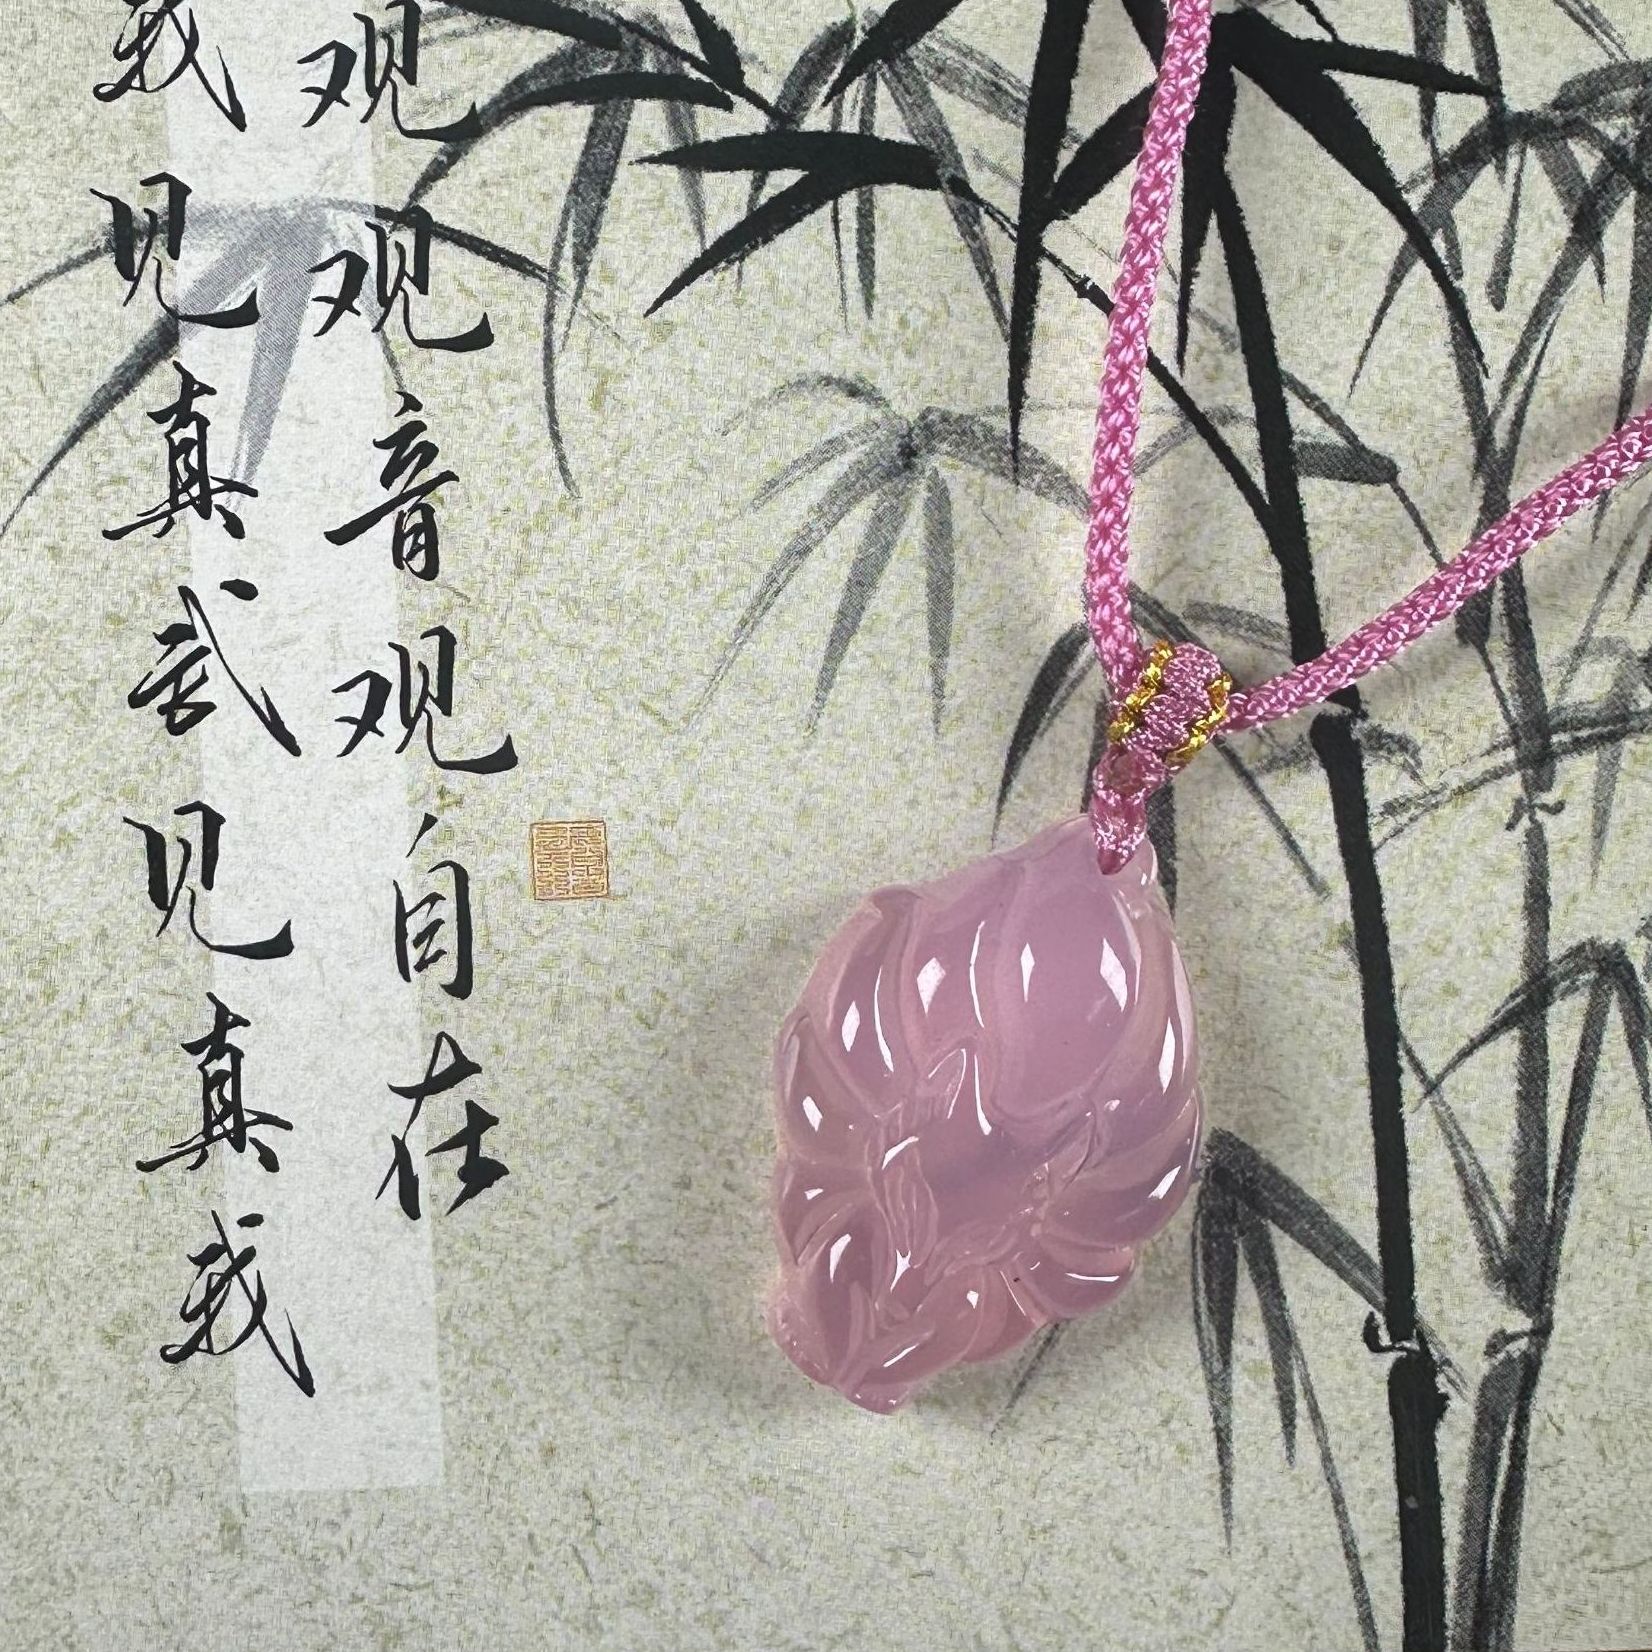 观观音观自在
我见真武见真我